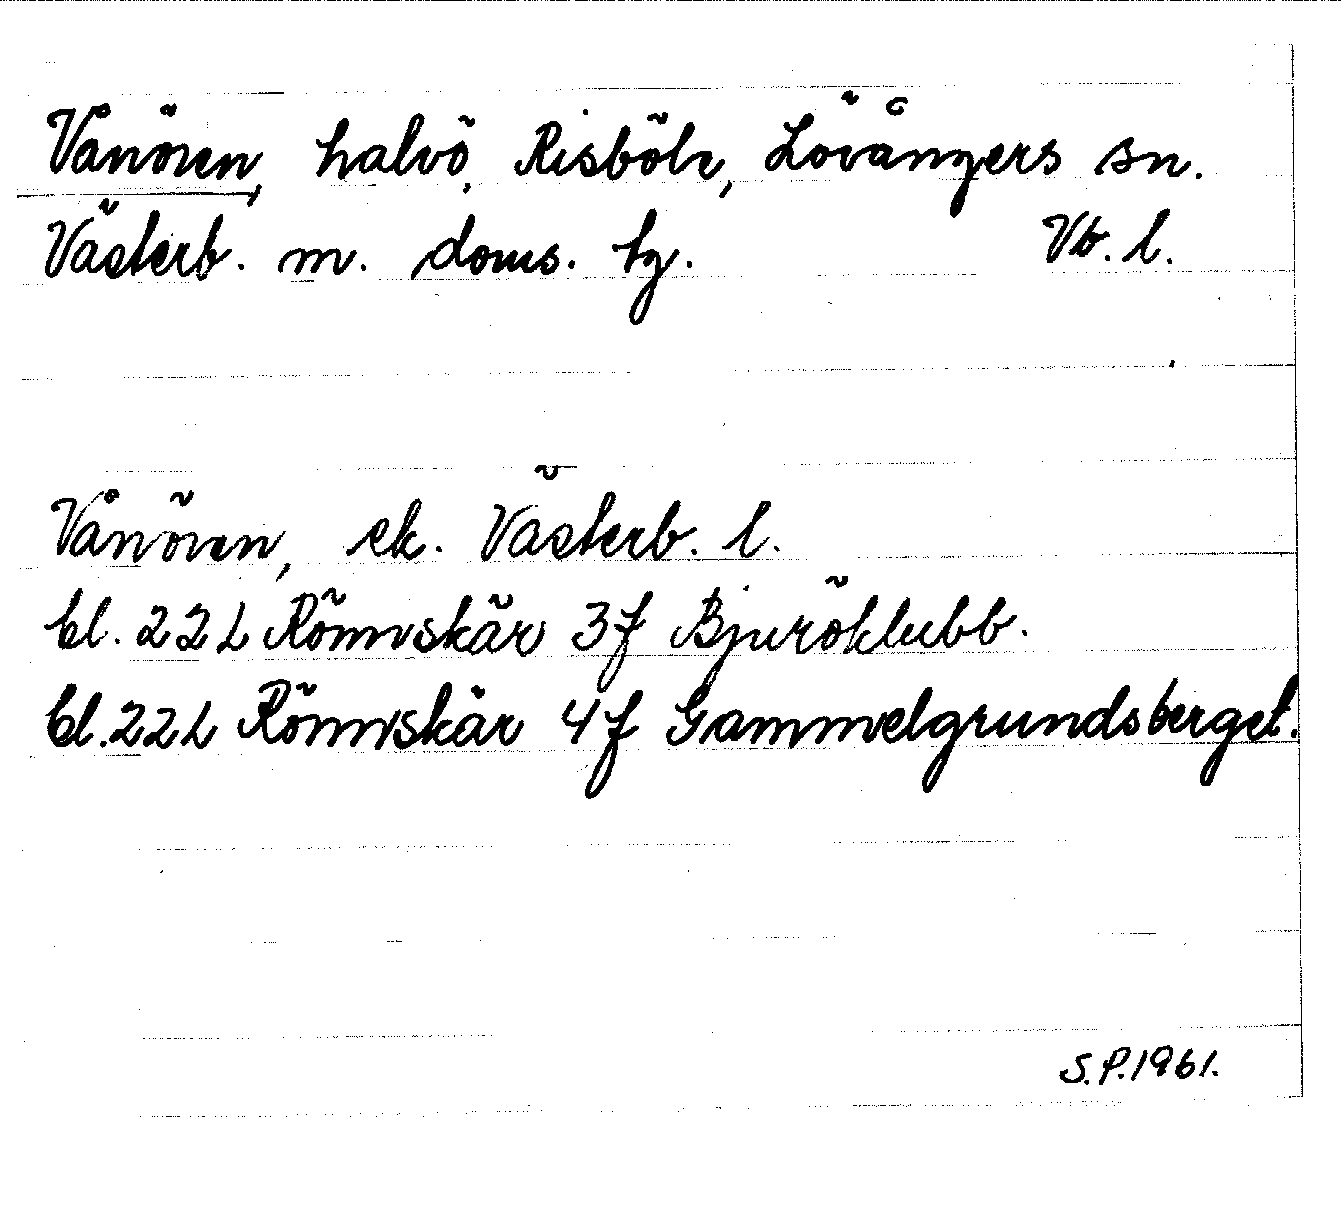 Vånören, halvö, Risböle, Lövångers sn.
Västerb. m. doms. tg. Vb. l.
Vånören, ek. Västerb. l.
bl. 22L Rönnskär 3f Bjuröklubb.
bl. 22L Rönnskär 4f Gammelgrundsberget.
S.P. 1961.